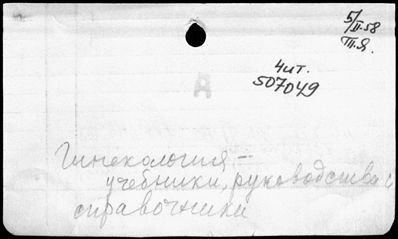 5/II.58
III.Я.
Чит.
507049
Гинекология –
учебники, руководства и
справочники